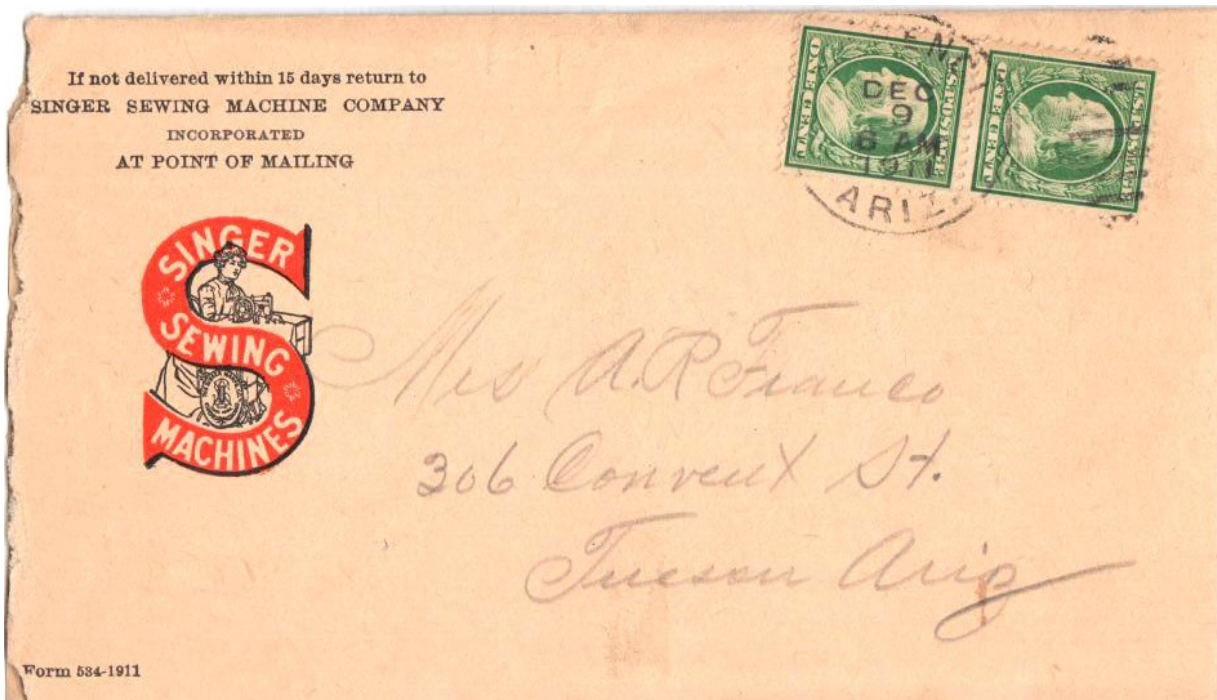 If not delivered within 15 days return to
SINGER SEWING MACHINE COMPANY
INCORPORATED
AT POINT OF MAILING
DEC
9
6 AM
1911
ARIZ.
U.S. POSTAGE
ONE CENT
U.S. POSTAGE
ONE CENT
SINGER
SEWING
MACHINES
Mrs A. R Franco
306 Convent St.
Tucson Ariz
Form 534-1911